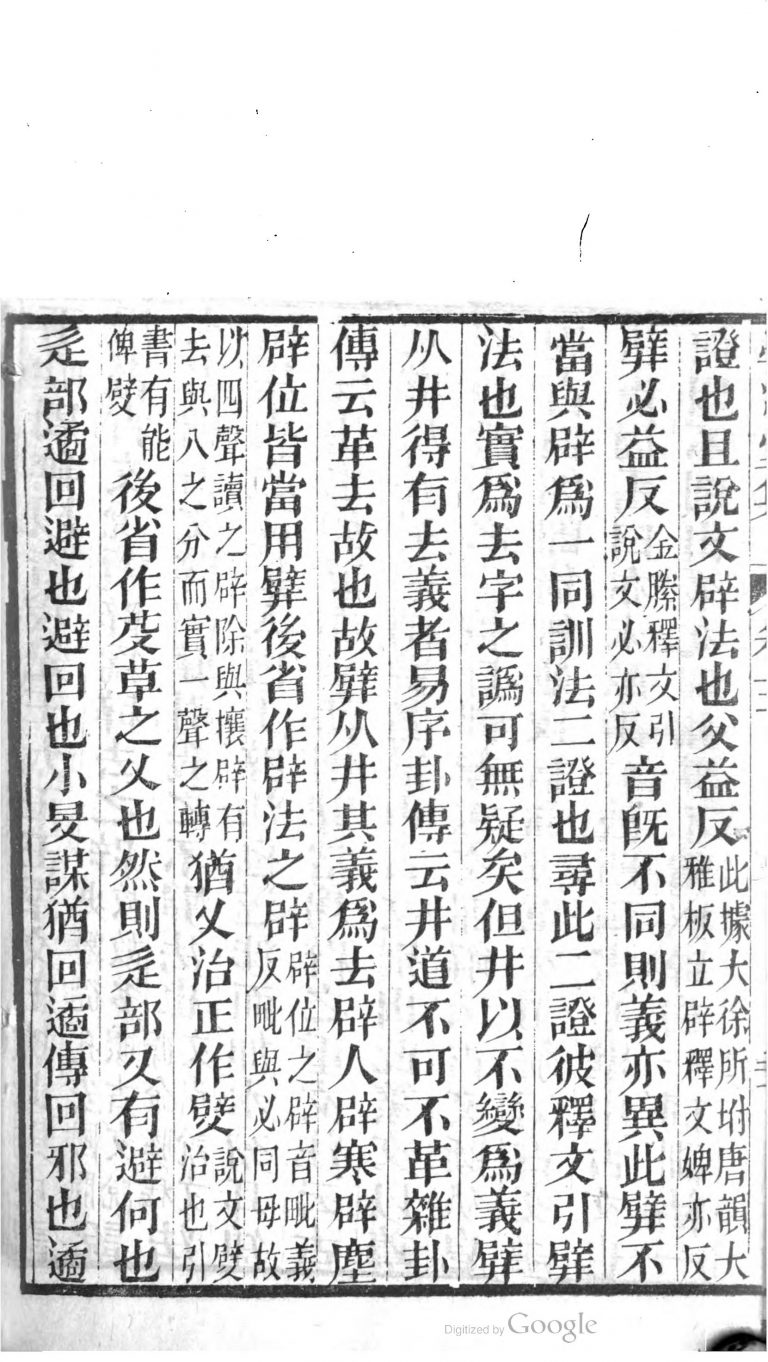 證也且說文辟法也父益反此據大徐所坿唐韻大雅板立辟釋文婢亦反
㡀必益反金縢釋文引說文必亦反音旣不同則義亦異此㡀不
當與辟爲一同訓法二證也尋此二證彼釋文引㡀
法也實爲去字之譌可無疑矣但井以不變爲義㡀
从井得有去義者易序卦傳云井道不可不革雜卦
傳云革去故也故㡀从井其義爲去辟人辟寒辟塵
辟位皆當用㡀後省作辟法之辟辟位之辟音毗義反毗與必同母故
以四聲讀之辟除與攘辟有去與入之分而實一聲之轉猶乂治正作㡀說文㡀治也引
書有能俾㡀後省作芟草之乂也然則辵部又有避何也
辵部遹回避也避回也小旻謀猶回遹傳回邪也遹
Digitized by Google